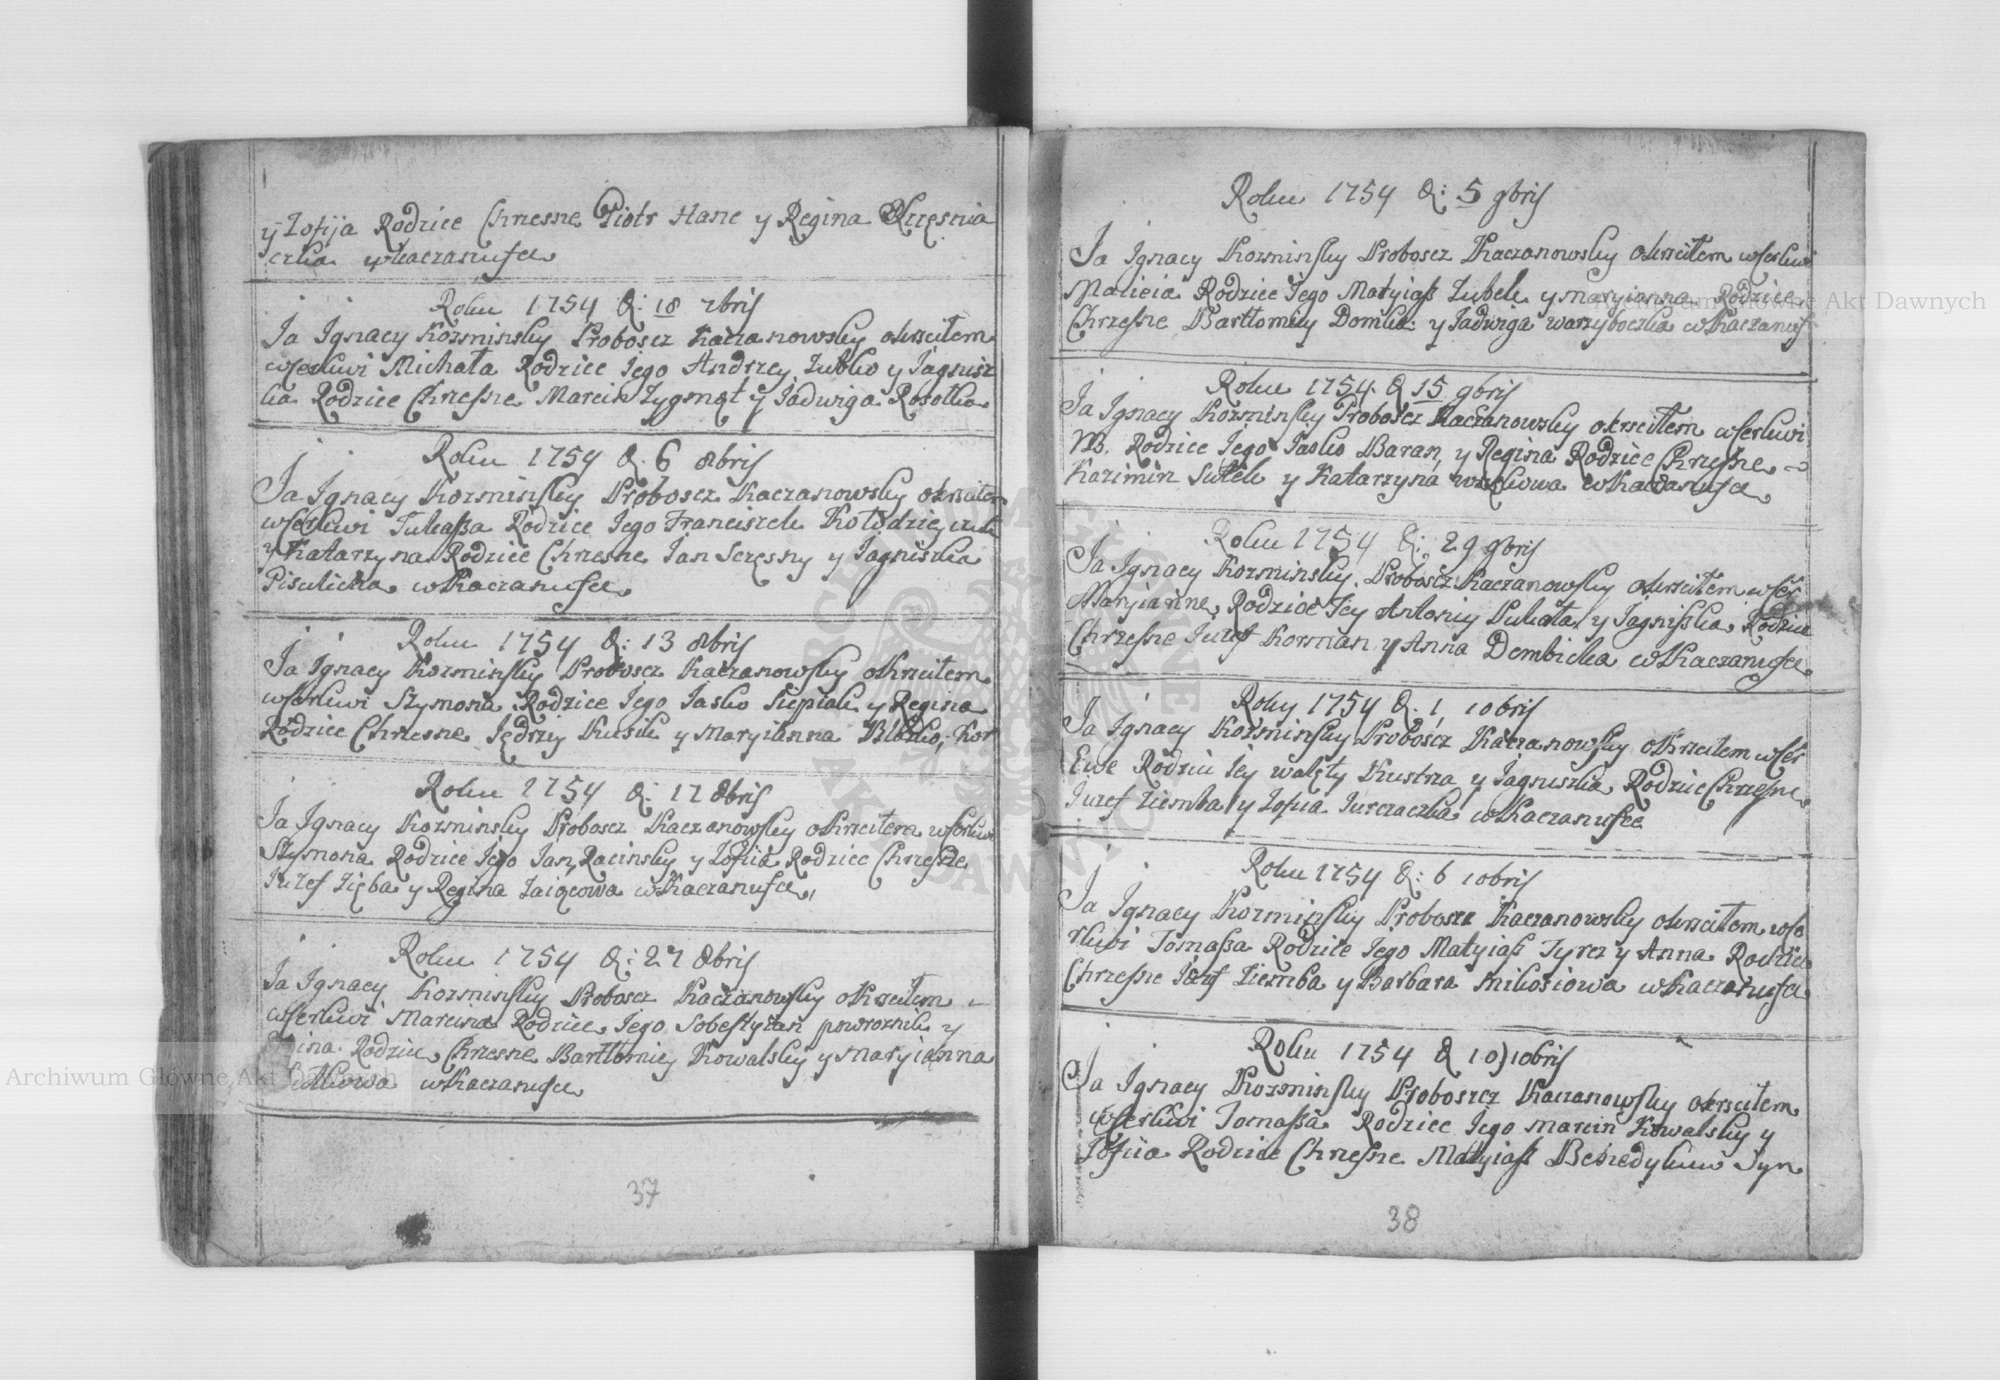 y Zofija Rodzice Chrzesne Piotr Hanc y Regina Krzęsnia
czka w Kaczanufce
Roku 1754 d: 18 7bris
Ja Ignacy Kozminsky Proboscz Kaczanowsky okrscilem
w Cerkwi Michała Rodzice Jego Andrzey Zubko y Jagnisz
ka Rodzice Chrzesne Marcin Zygmąt y Jadwiga Rosołka
Roku 1754 d. 6 8bris
Ja Ignacy Kozminsky Proboscz Kaczanowsky okrscilem
w Cerkwi Łukassa Rodzice Jego Franciszek Kołodziey
y Katarzyna Rodzice Chrzesne Jan Sczęsny y Jagniszka
Pisulicka w Kaczanufce
Roku 1754 d: 13 8bris
Ja Ignacy Kozminsky Proboscz Kaczanowsky okrscilem
w Cerkwi Szymona Rodzice Jego Jasko Siepiak y Regina
Rodzice Chrzesne Jędrzey Kusik y Maryianna
Roku 1754 d: 17 8bris
Ja Ignacy Kozminsky Proboscz Kaczanowsky okrscilem w Cerkwi
Szymona Rodzice Jego Jan Racinsky y Zofiia Rodzice Chrzesne
Juzef Zięba y Regina Zaięcowa w Kaczanufce
Roku 1754 d: 27 8bris
Ja Ignacy Kozminsky Proboscz Kaczanowsky okrscilem
w Cerkwi Marcina Rodzice Jego Sobestyian powroznik y
Rodzice Chrzesne Bartłomiey Kowalsky y Maryianna
w Kaczanufce
37
Roku 1754 d: 5 9bris
Ja Ignacy Kozminsky Proboscz Kaczanowsky okrscilem w Cerkwi
Macieia Rodzice Jego Matyiass Zubek y Maryianna Rodzice
Chrzesne Bartłomiey Domka y Jadwiga warzyboczka w Kaczanuf
Roku 1754 d 15 9bris
Ja Ignacy Kozminsky Proboscz Kaczanowsky okrscilem w Cerkwi
NB. Rodzice Jego Jasko Baran y Regina Rodzice Chrzesne
Kazimirz Sułek y Katarzyna w Kaczanufce
Roku 1754 d: 29 9bris
Ja Ignacy Kozminsky Proboscz Kaczanowsky okrscilem w Cer
Maryianne Rodzice Jey Antoniy Pukała y Jagnisska Rodzice
Chrzesne Juzef Korman y Anna Dembicka w Kaczanufce
Roku 1754 d. 1, 10bris
Ja Ignacy Kozminsky Proboscz Kaczanowsky okrscilem w Cer
Ewe Rodzici Jey walęty Kustra y Jagniszka Rodzice Chrzesne
Juzef Ziemba y Zofiia Jurczaczka w Kaczanufce
Roku 1754 d: 6 10bris
Ja Ignacy Kozminsky Proboscz Kaczanowsky okrscilem w Ce
rkwi Tomassa Rodzice Jego Matyiass Tyrcz y Anna Rodzice
Chrzesne Józef Ziemba y Barbara Mikosiowa w Kaczanufce
Roku 1754 d 10) 10bris
Ja Ignacy Kozminsky Proboszcz Kaczanowsky okrscilem
w Cerkwi Tomassa Rodzice Jego Marcin Kowalsky y
Zofiia Rodzice Chrzesne Matyiass Benedykuw Syn
38
Archiwum Główne Akt Dawnych
Archiwum Główne Akt Dawnych
ARCHIWUM GŁÓWNE
AKT DAWNYCH